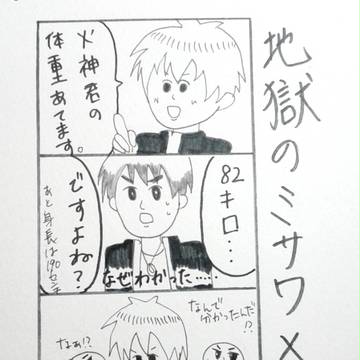 地獄のミサワ×
火神君の
体重あてます。
82
キロ…
ですよね?
あと身長は190センチ
なぜわかった……
なんで
分かったんだ!?
なぁ!?